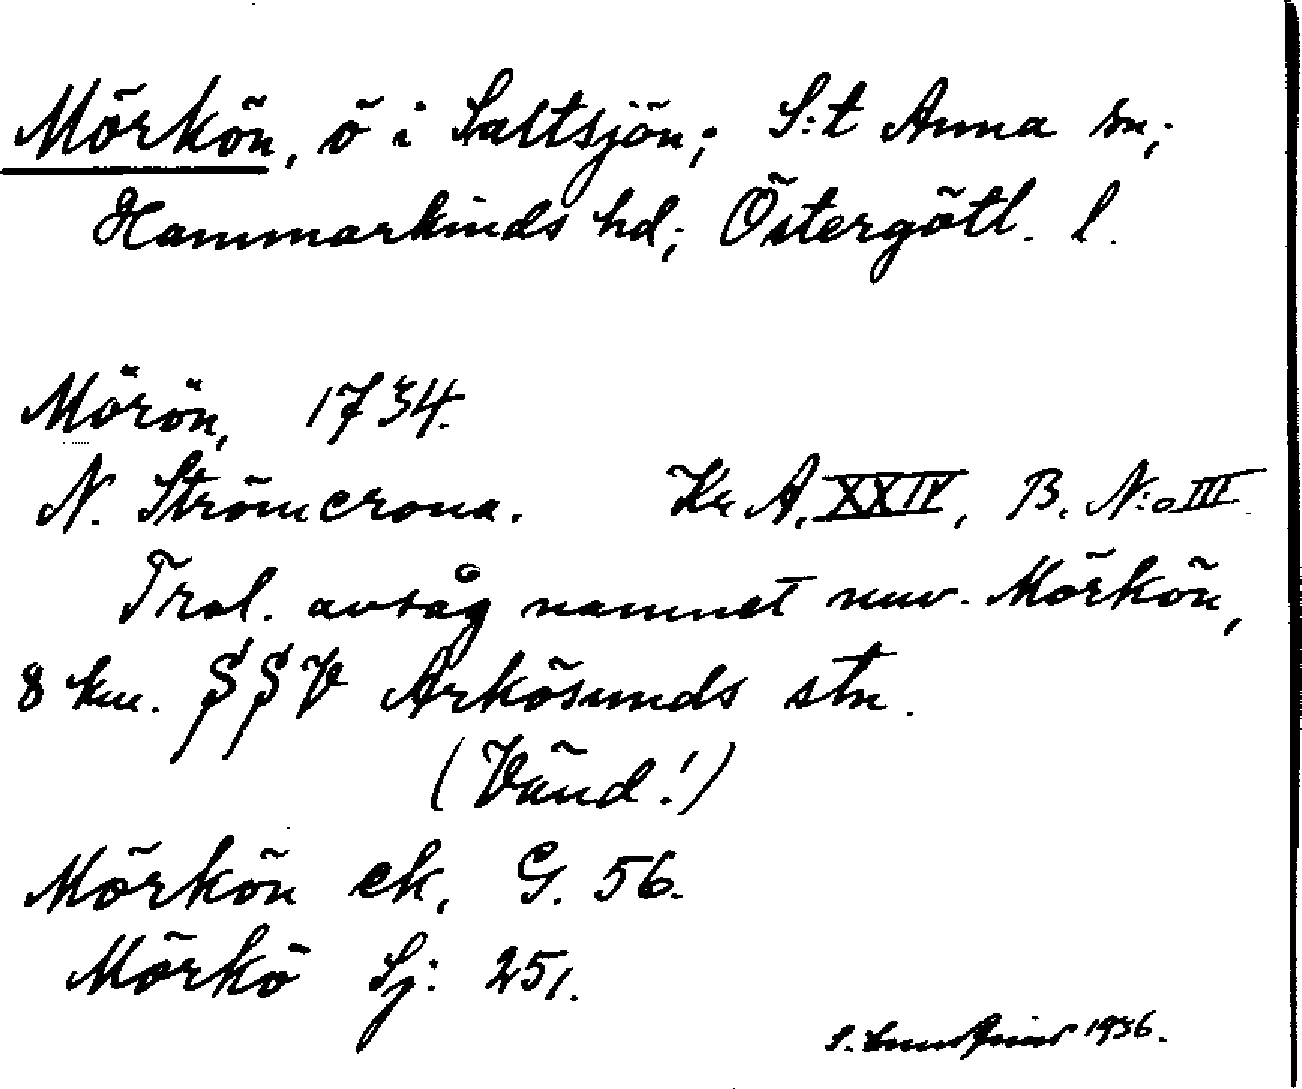 Mörkön, ö i Saltsjön; S:t Anna sn;
Hammarkinds hd; Östergötl. l.
Mörön, 1734.
N. Strömcrona. Kr A, XXIV, B. N:o III
Trol. avsåg namnet nuv. Mörkön,
8 km. SSV Arkösunds stn.
(Vänd!)
Mörkön ek, G. 56.
Mörkö Sj: 251.
S. 1936.